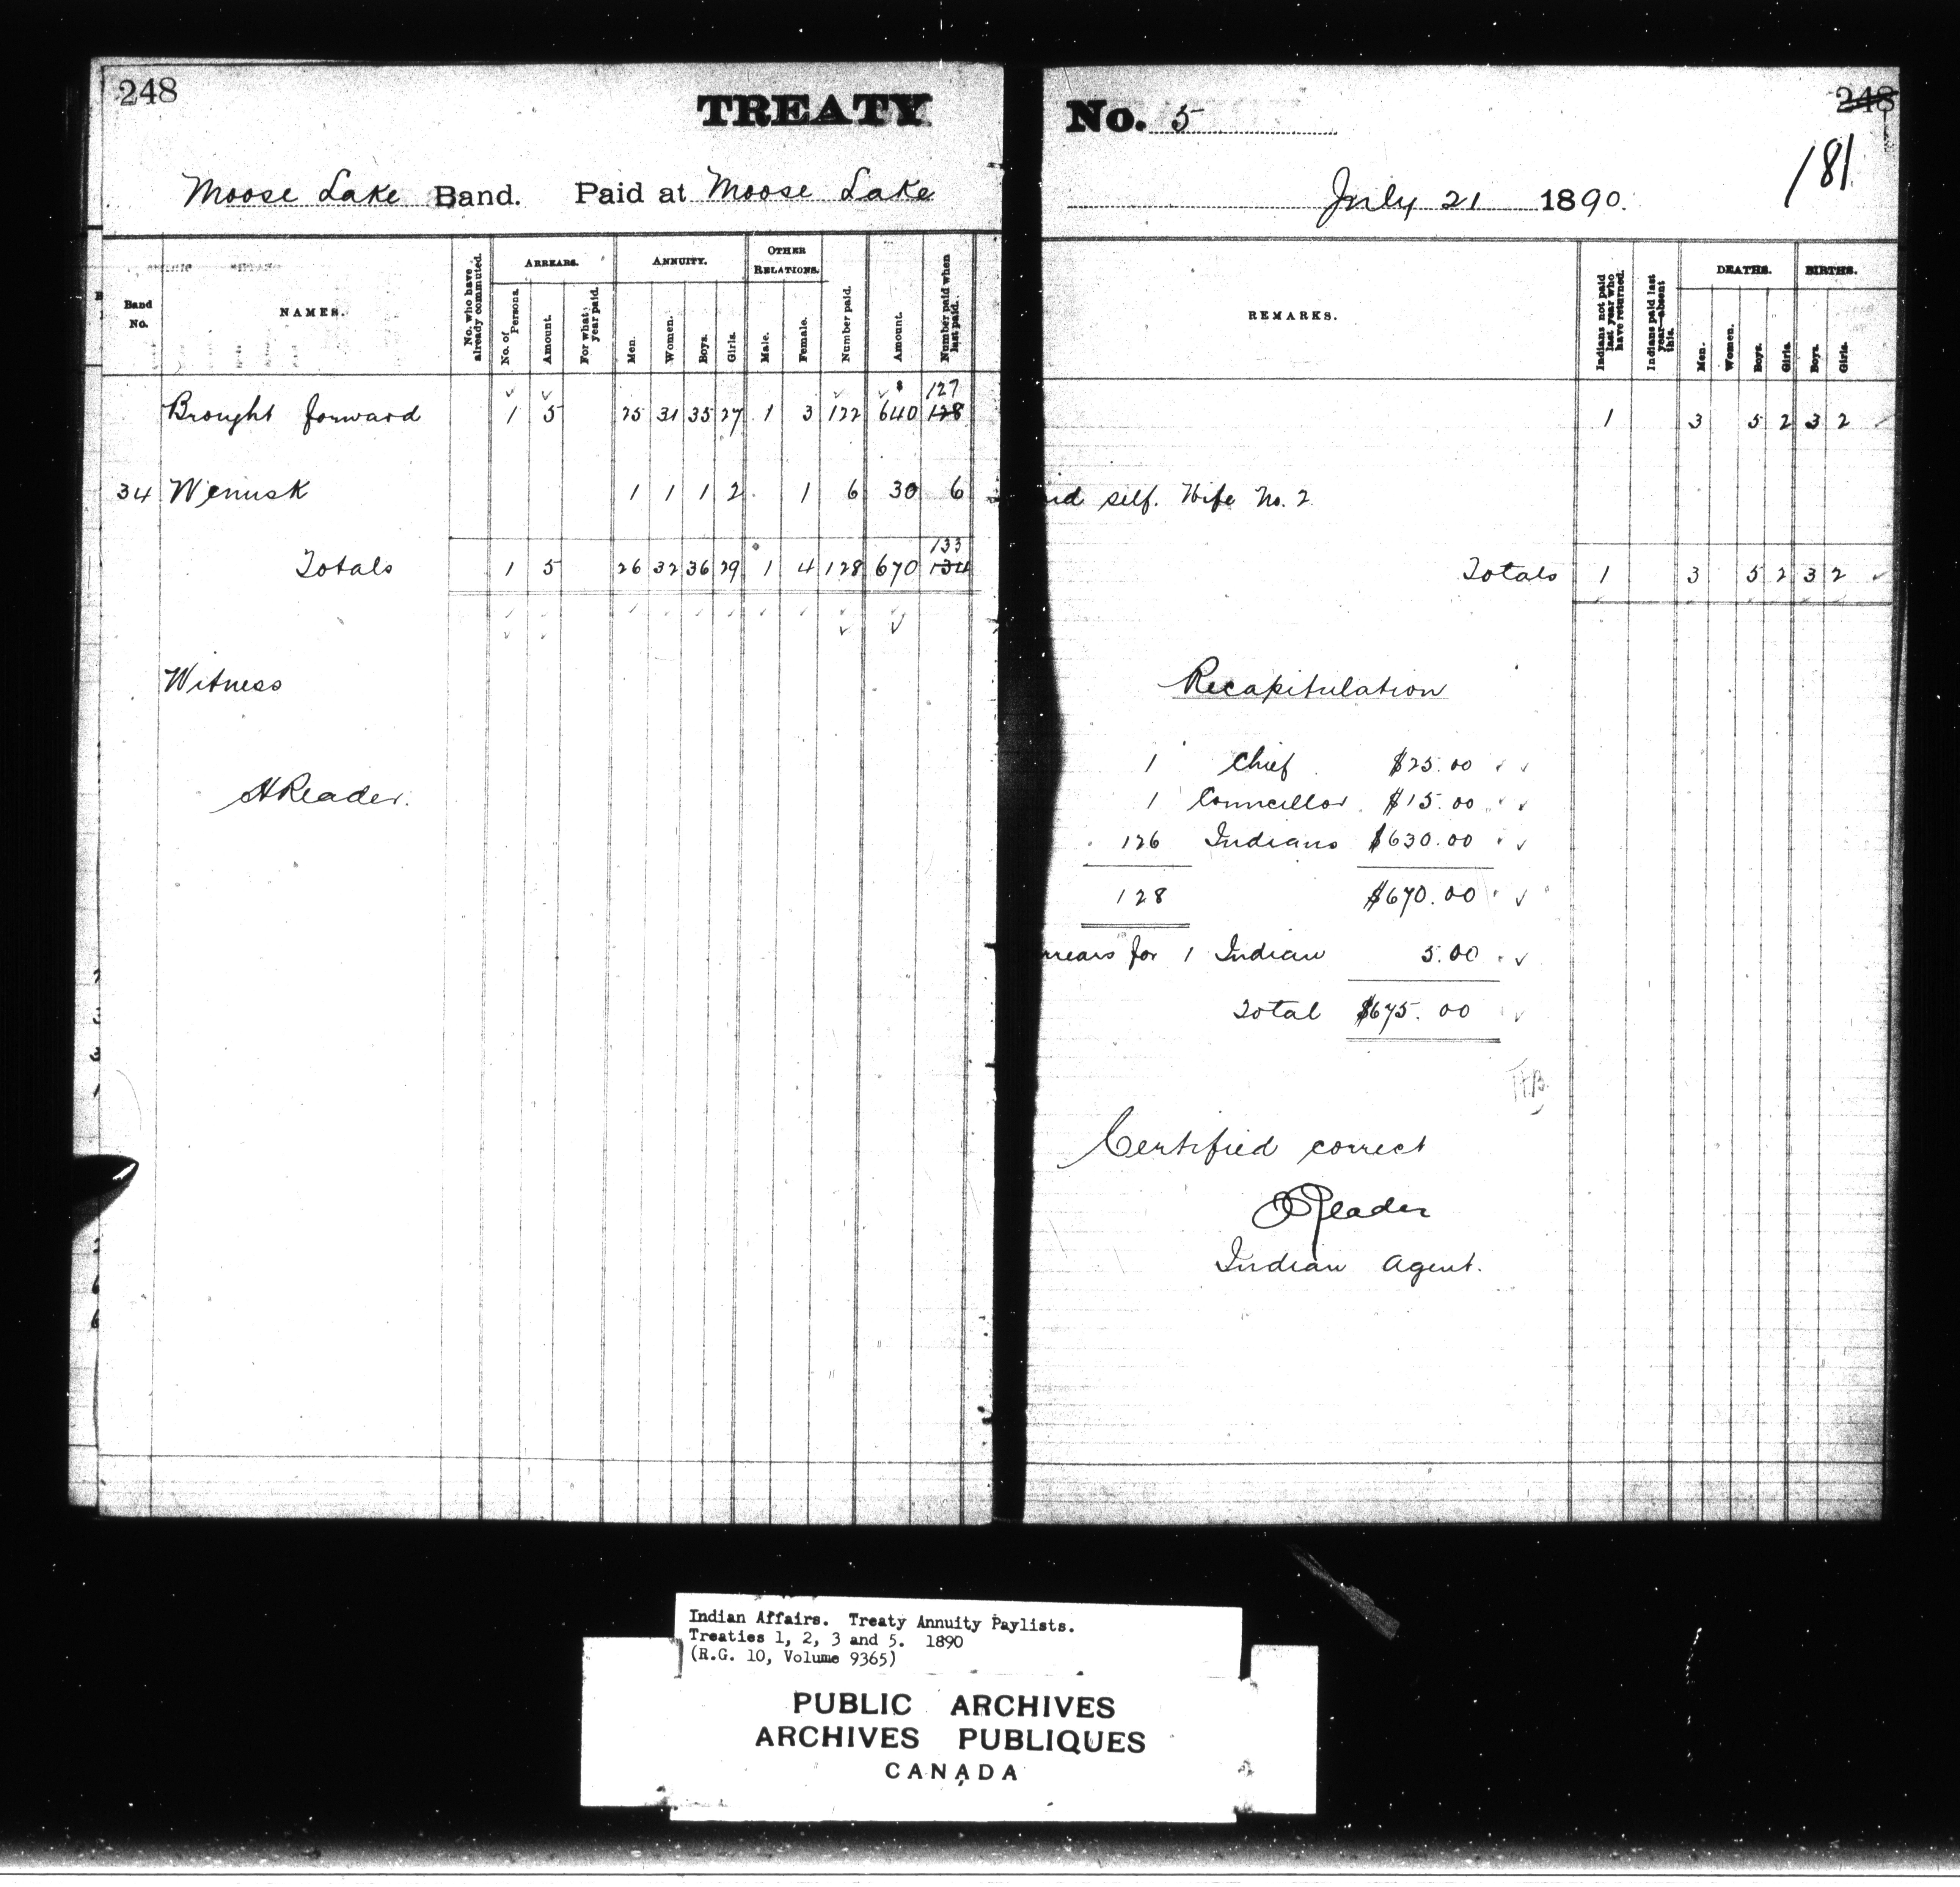 248
TREATY
No. 5
248
181
Moose Lake Band. Paid at Moose Lake
July 21 1890.
Band No.
NAMES.
No. who have already commuted.
ARREARS.
No. of Persons.
Amount.
For what year paid.
ANNUITY.
Men.
Women.
Boys.
Girls.
OTHER RELATIONS.
Male.
Female.
Number paid.
Amount.
Number paid when last paid.
REMARKS.
Indians not paid last year who have returned.
Indians paid last year—absent this.
DEATHS.
Men.
Women.
Boys.
Girls.
BIRTHS.
Boys.
Girls.
$ 127
Brought forward 1 5 25 31 35 27 1 3 122 640 128 1 3 5 2 3 2
34 Wenusk 1 1 1 2 1 6 30 6 self. Wife No. 2
133
Totals 1 5 26 32 36 29 1 4 128 670 134 Totals 1 3 5 2 3 2
Witness
Recapitulation
1 Chief $25.00
1 Councillor $15.00
126 Indians $630.00
128 $670.00
rrears for 1 Indian 5.00
Total $675.00
Reader.
Certified correct
Reader
Indian Agent.
Indian Affairs. Treaty Annuity Paylists.
Treaties 1, 2, 3 and 5. 1890
(R.G. 10, Volume 9365)
PUBLIC ARCHIVES
ARCHIVES PUBLIQUES
CANADA